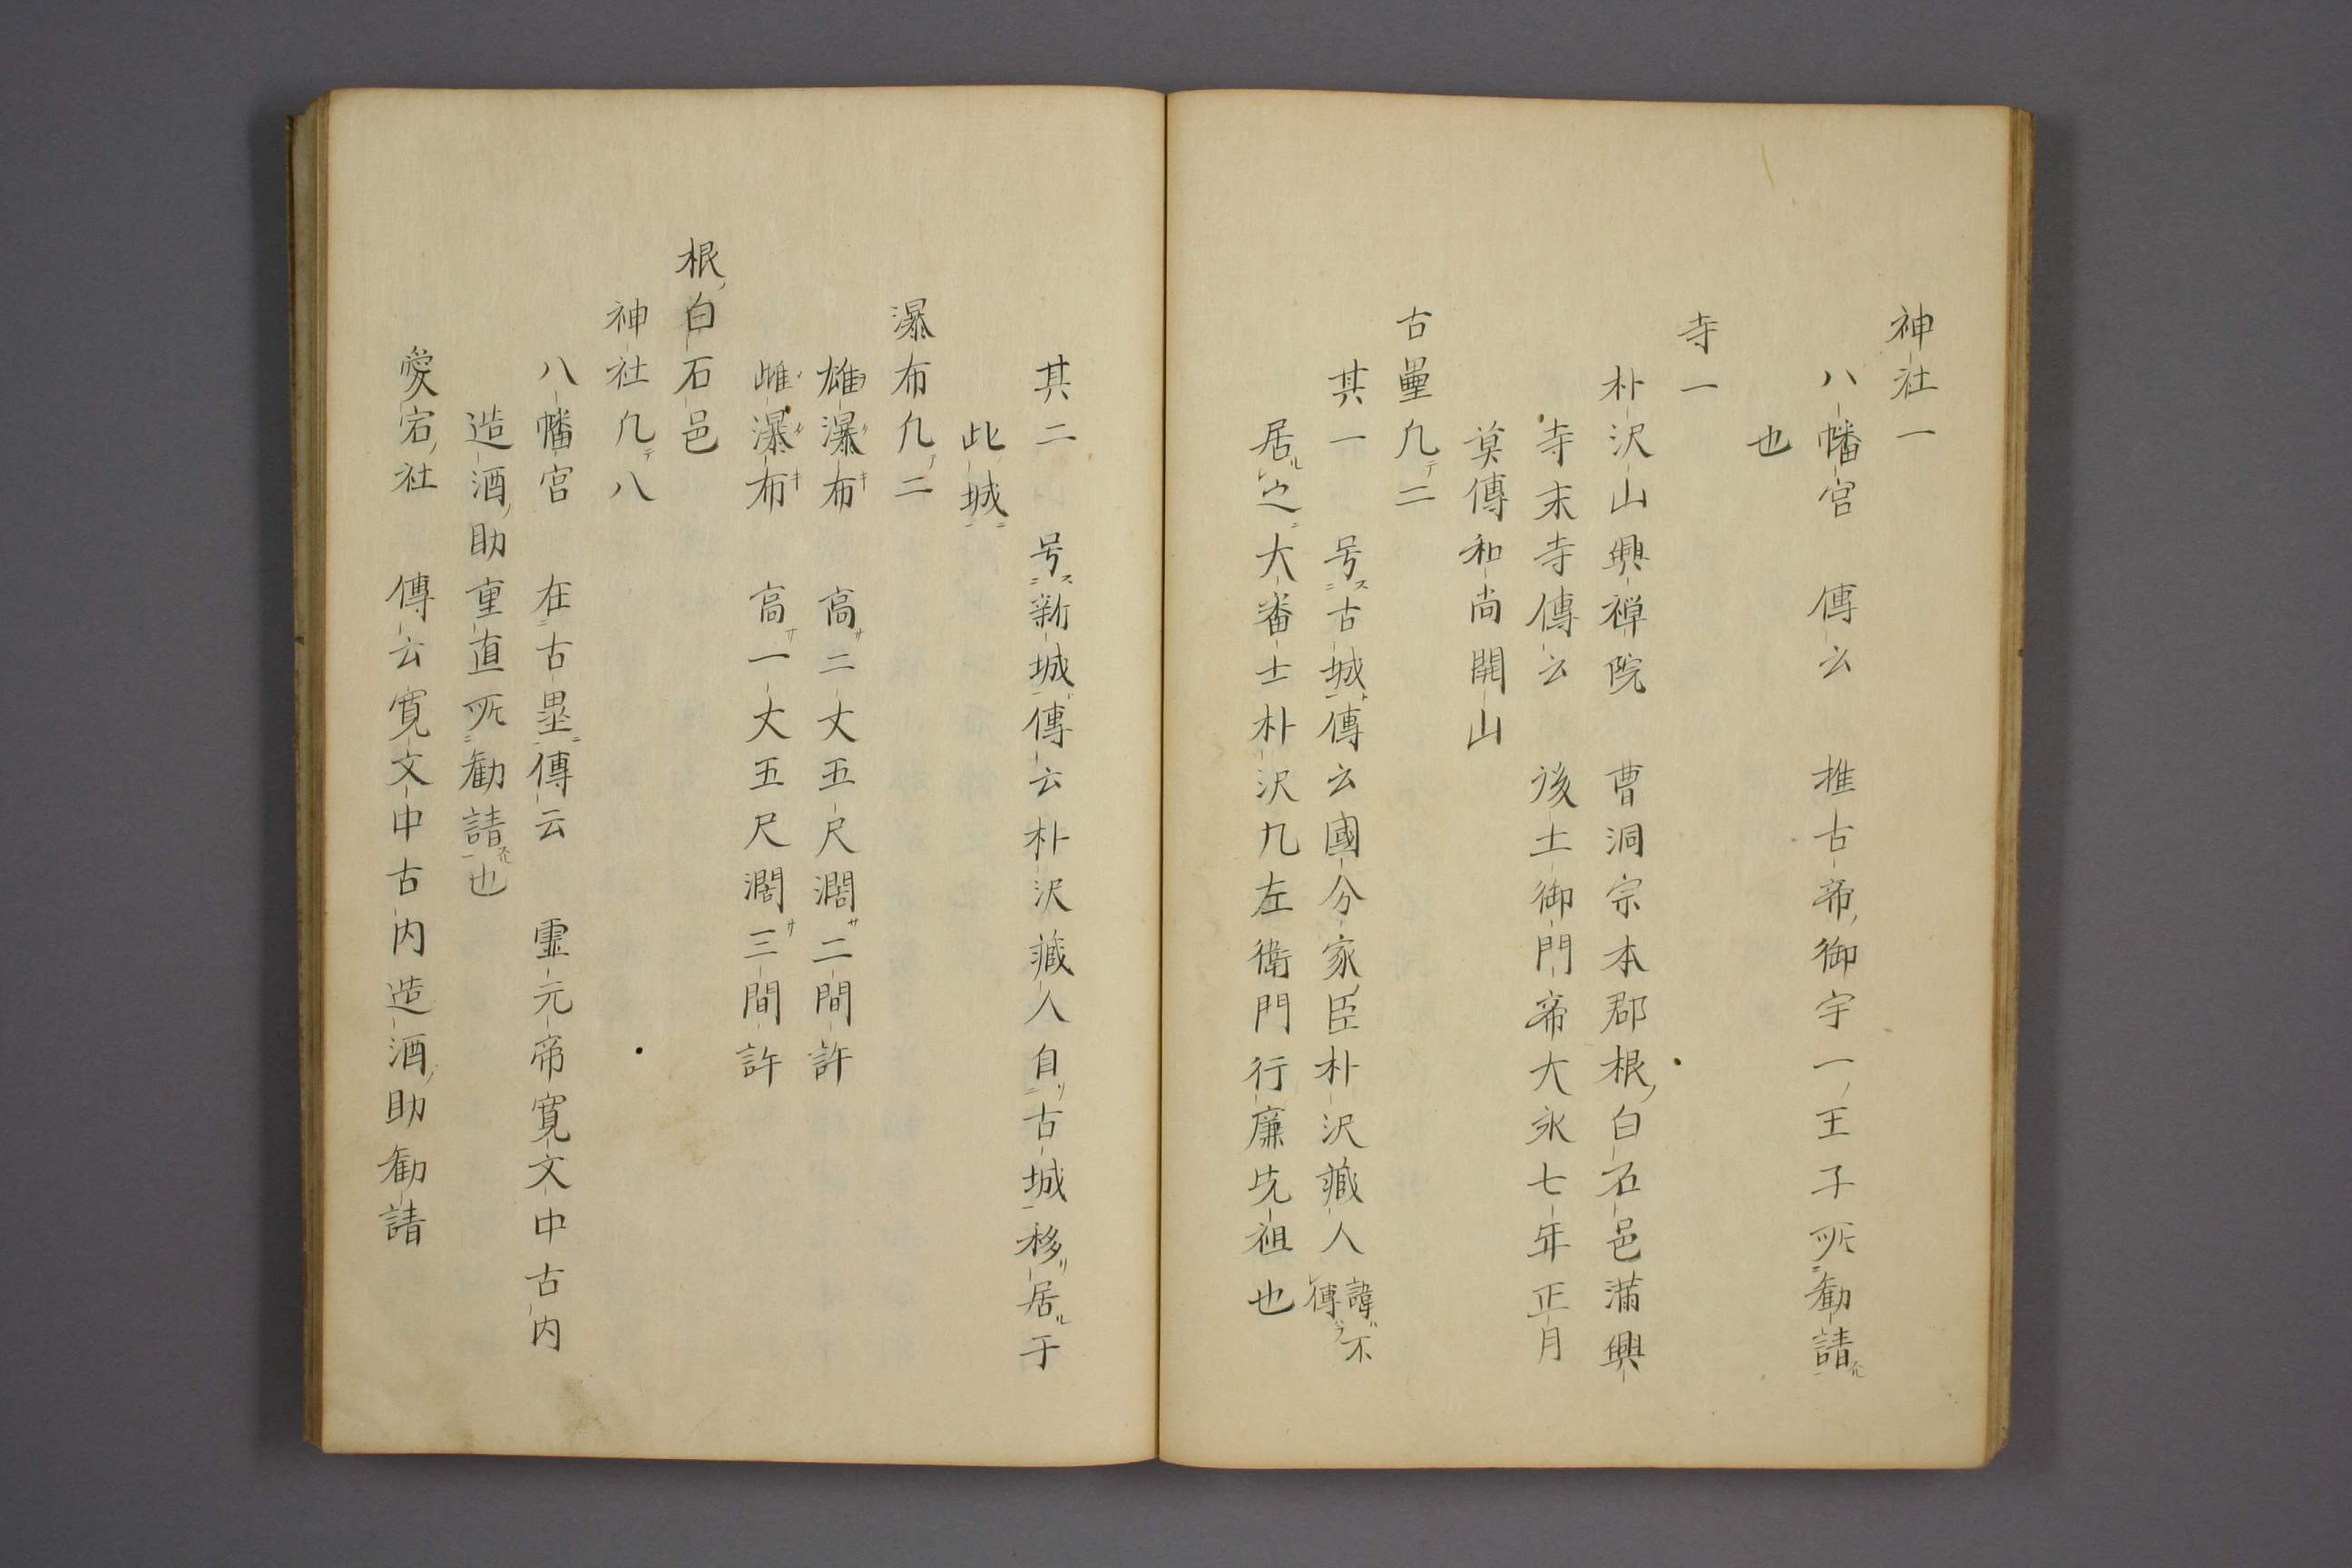 神社一
八幡宮　傳云　推古帝御宇一ノ王子所勧請スル
也
寺一
朴沢山興禅院　曹洞宗本郡根ノ白石邑満興
寺末寺傳云　後土御門帝大永七年正月
莫傳和尚開山
古壘凢テ二
其一　号ス古城ト傳云國分ノ家臣朴沢藏人諱ハ不傳ラ
居ル之ニ大番士朴沢九左衛門行廉先祖也
其二　号ス新城ト傳云朴沢藏人自リ古城移リ居ル于
此城ニ
瀑布凢テ二
雄瀑布　高サ二丈五尺濶サ二間許
雌瀑布　高サ一丈五尺濶サ三間許
根ノ白石邑
神社凢テ八
八幡宮　在古塁ニ傳云　霊元帝寛文中古内
造酒ノ助重直所勧請スル也
愛宕ノ社　傳云寛文中古内造酒ノ助勧請